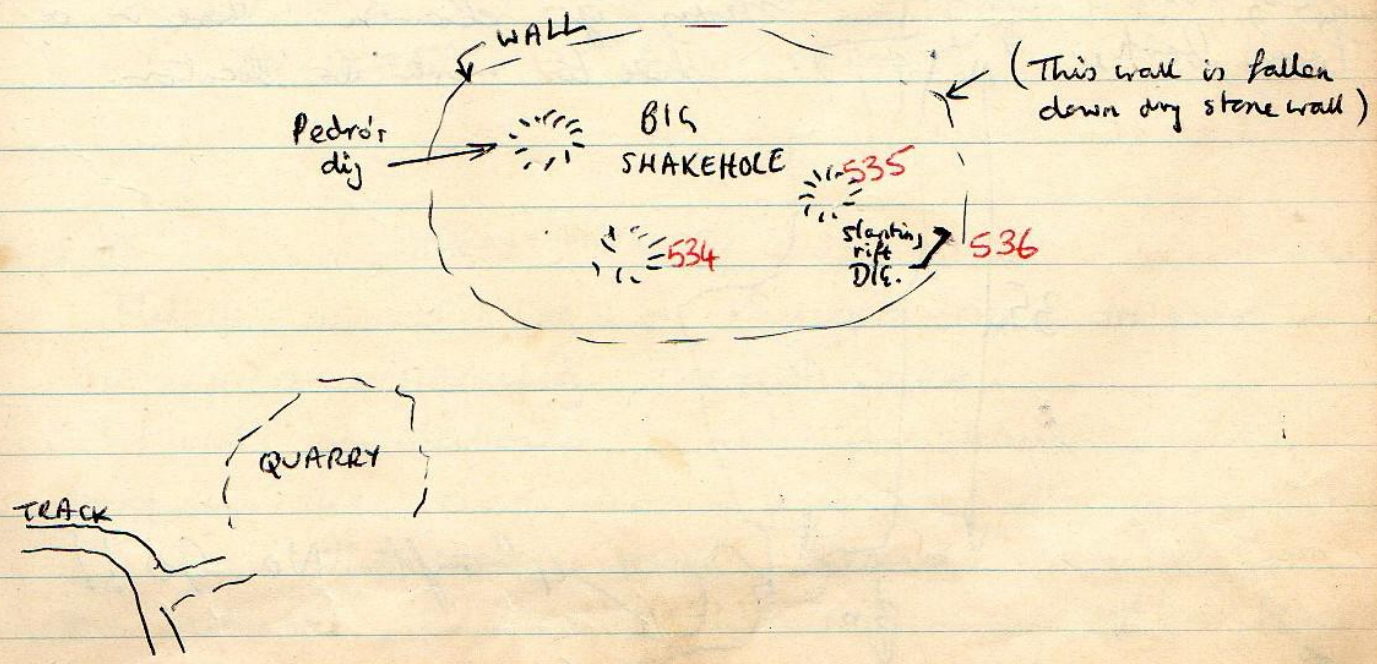 WALL
(This wall is fallen
down dry stone wall)
Pedro's
dig
BIG
SHAKEHOLE
535
534
slanting
rift
DIG.
536
QUARRY
TRACK